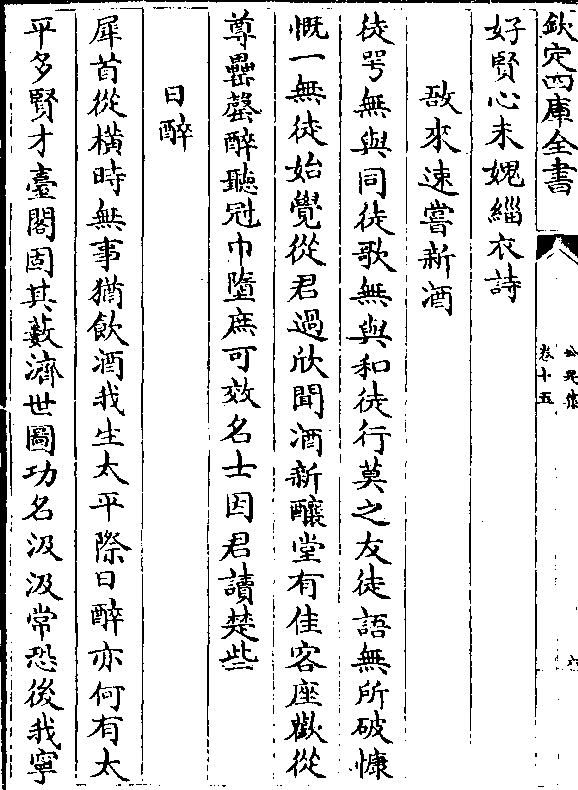 欽定四庫全書
卷十五
好賢心未媿緇衣詩
敔來速嘗新酒
徒咢無與同徒歌無與和徒行莫之友徒語無所破慷
慨一無徒始覺從君過欣聞酒新釀堂有佳客座歡從
尊罍罄醉聽冠巾墮庶可效名士因君讀楚些
日醉
犀首從橫時無事猶飲酒我生太平際日醉亦何有太
平多賢才臺閣固其藪濟世圖功名汲汲常恐後我寧